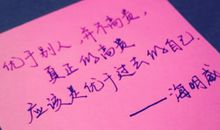 优于别人，并不高贵，
真正的高贵
应该是优于过去的自己.
——海明威